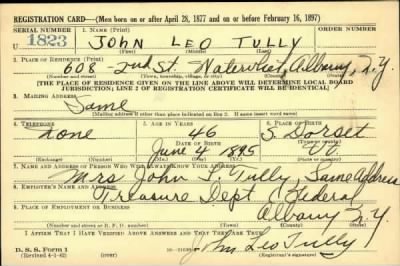 REGISTRATION CARD—(Men born on or after April 28, 1877 and on or before February 16, 1897)
SERIAL NUMBER 1. NAME (Print) ORDER NUMBER
U 1823 JOHN LEO TULLY
(First) (Middle) (Last)
2. PLACE OF RESIDENCE (Print)
608 2nd St. Watervliet, Albany, N.Y.
(Number and street) (Town, township, village, or city) (County) (State)
[THE PLACE OF RESIDENCE GIVEN ON THE LINE ABOVE WILL DETERMINE LOCAL BOARD
JURISDICTION; LINE 2 OF REGISTRATION CERTIFICATE WILL BE IDENTICAL]
3. MAILING ADDRESS
Same
[Mailing address if other than place indicated on line 2. If same insert word same]
4. TELEPHONE 5. AGE IN YEARS 6. PLACE OF BIRTH
none 46 S. Dorset
DATE OF BIRTH
June 4 1895 Vt.
(Exchange) (Number) (Mo.) (Day) (Yr.) (State or country)
7. NAME AND ADDRESS OF PERSON WHO WILL ALWAYS KNOW YOUR ADDRESS
Mrs John T. Tully, Same Address
8. EMPLOYER'S NAME AND ADDRESS
Treasure Dept Federal
9. PLACE OF EMPLOYMENT OR BUSINESS
Albany N.Y.
(Number and street or R. F. D. number) (Town) (County) (State)
I AFFIRM THAT I HAVE VERIFIED ABOVE ANSWERS AND THAT THEY ARE TRUE.
D. S. S. Form 1
(Revised 4-1-42) (over) John Leo Tully
(Registrant's signature)